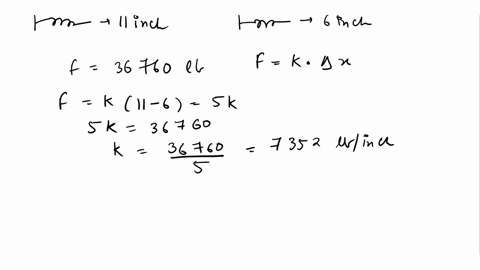 → 11 inch → 6 inch
F = 36760 lb F = K · Δx
F = K (11-6) = 5K
5K = 36760
K = 36760/5 = 7352 lb/inch